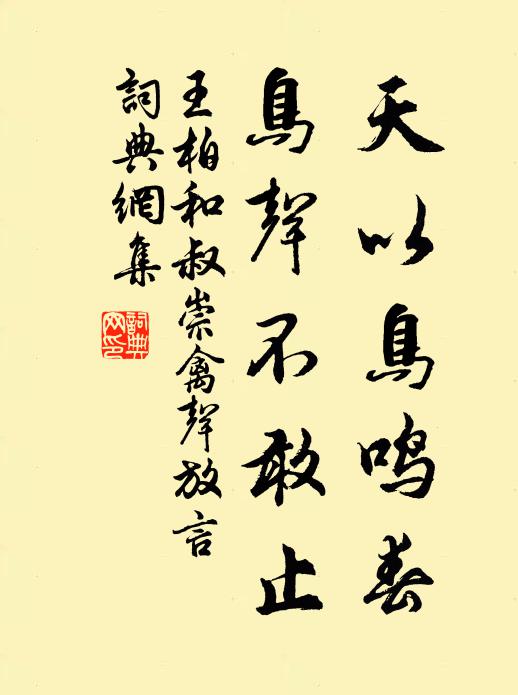 天以鳥鳴春
鳥聲不敢止
王柏和叔崇禽聲放言
詞典網集
詞典網印